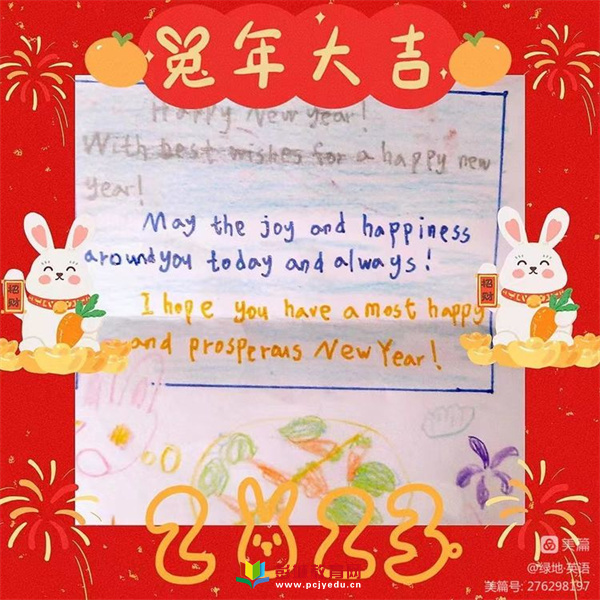 兔年大吉
Happy New year!
With best wishes for a happy new
year!
May the joy and happiness
around you today and always!
I hope you have a most happy
and prosperous New Year!
招财
招财
2023
美篇
@绿地·英语
www.pcjyedu.cn
美篇号: 276298197